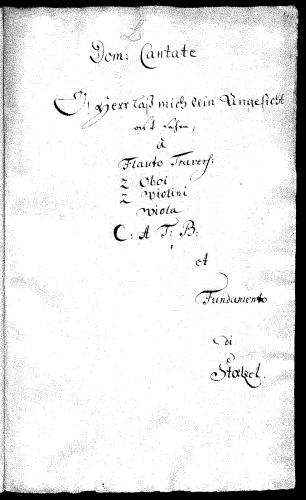 Dom: Cantate
Herr laß mich dein Angesicht
oft sehen,
à
Flauto Travers:
2 Oboi
2 Violini
Viola
C: A T: B:
et
Fundamento
di
Stœlzel.